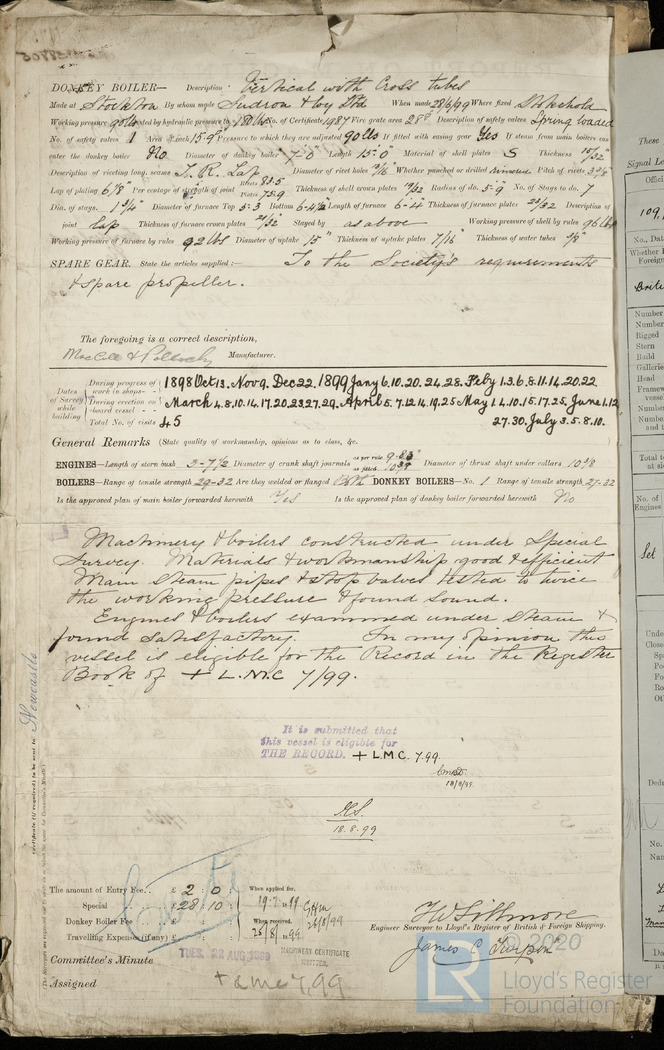 DONKEY BOILER— Description Vertical with Cross tubes
Made at Stockton By whom made Sudron & Coy Ltd When made 28/6/99 Where fixed Stokehold
Working pressure 90lbs tested by hydraulic pressure to 180lbs No. of Certificate 1987 Fire grate area 28 Description of safety valves Spring loaded
No. of safety valves 1 Area of each 15.9 Pressure to which they are adjusted 90lbs If fitted with easing gear Yes If steam from main boilers can
enter the donkey boiler No Diameter of donkey boiler 7-0" Length 15-0" Material of shell plates S Thickness 15/32"
Description of riveting long. seams T. R. Lap Diameter of rivet holes Whether punched or drilled Pitch of rivets
Lap of plating 6 1/8" Per centage of strength of joint Rivets 83.5 Plates 75.9 Thickness of shell crown plates Radius of do. 5-9 No. of Stays to do. 7
Dia. of stays. 1 3/4" Diameter of furnace Top 5-3 Bottom 6-4 1/2 Length of furnace 6-4 Thickness of furnace plates 23/32 Description of
joint Lap Thickness of furnace crown plates 21/32 Stayed by as above Working pressure of shell by rules 96lbs
Working pressure of furnace by rules 92lbs Diameter of uptake 15" Thickness of uptake plates 7/16" Thickness of water tubes 3/8"
SPARE GEAR. State the articles supplied:— To the Society's requirements
& spare propeller.
The foregoing is a correct description,
MacColl & Pollock Manufacturer.
Dates of Survey while building
During progress of work in shops-- 1898 Oct 13. Nov 9. Dec 22. 1899 Jany 6.10.20.24.28. Feby 1.3.6.8.11.14.20.22
During erection on board vessel-- March 4.8.10.14.17.20.23.27.29. April 5.7.12.14.19.25 May 1.4.10.15.17.25. June 1.12
Total No. of visits 45 27.30. July 3.5.8.10.
General Remarks (State quality of workmanship, opinions as to class, &c.
ENGINES—Length of stern bush 3-7 1/2 Diameter of crank shaft journals as per rule 9.83" as fitted Diameter of thrust shaft under collars 10 3/8
BOILERS—Range of tensile strength 29-32 Are they welded or flanged Both DONKEY BOILERS—No. 1 Range of tensile strength 27-32
Is the approved plan of main boiler forwarded herewith Yes Is the approved plan of donkey boiler forwarded herewith No
Machinery & boilers constructed under Special
Survey. Materials & workmanship good & efficient
Main steam pipes & stop valves tested to twice
the working pressure & found sound.
Engines & boilers examined under steam &
found satisfactory. In my opinion this
vessel is eligible for the Record in the Register
Book of + L.M.C 7/99.
It is submitted that
this vessel is eligible for
THE RECORD. + L.M.C. 7.99.
18.8.99
The amount of Entry Fee.. £ 2 : 0 : When applied for,
Special £ 28 : 10 : 19.7.1899
Donkey Boiler Fee £ : : When received,
Travelling Expenses (if any) £ : : 25/8/1899
Committee's Minute TUES. 22 AUG 1899 MACHINERY CERTIFICATE WRITTEN.
Assigned + LMC 7.99
Engineer Surveyor to Lloyd's Register of British & Foreign Shipping.
© 2020
Lloyd's Register
Foundation
LR
Certificate (if required) to be sent to Newcastle
These
Signal Le
Offici
109,
No., Dat
Whether
Foreign
Number
Number
Rigged
Stern
Build
Gallerie
Head
Framew
vesse
Number
Numbe
Total to
No. of
Engines
Set
Unde
Close